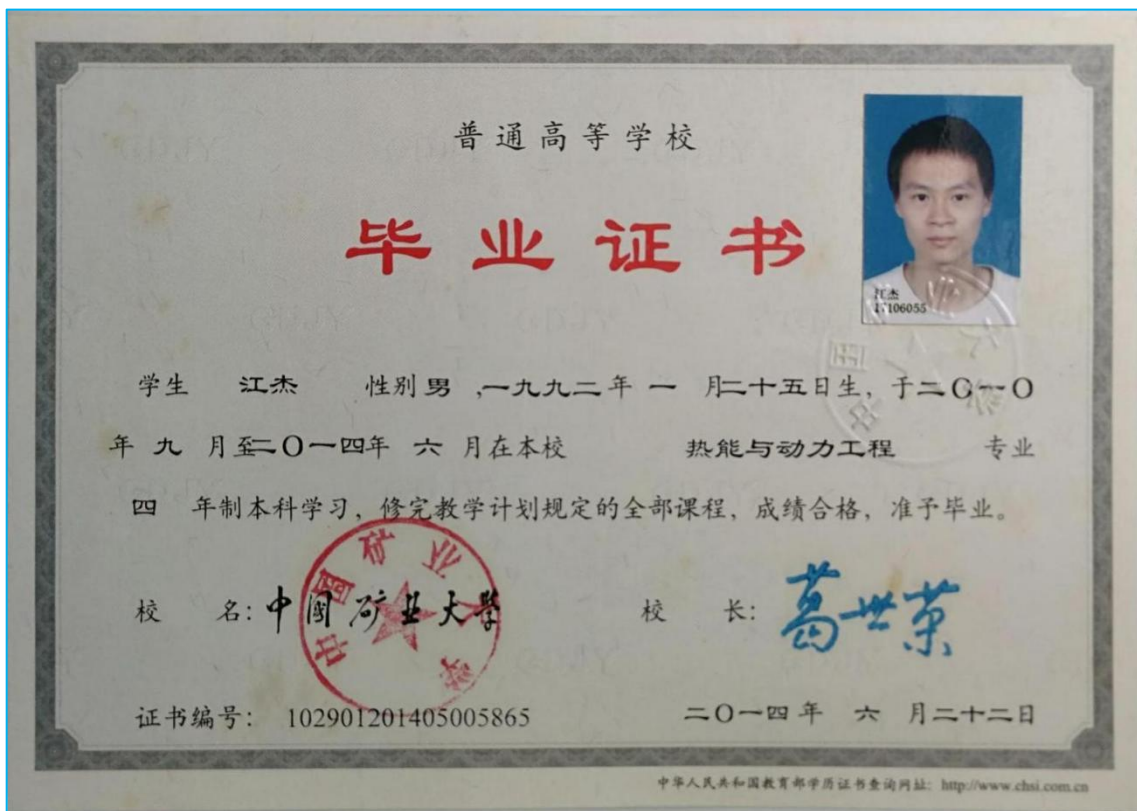 普通高等学校
毕业证书
江杰
17106055
学生 江杰 性别 男 ,一九九二年 一 月二十五日生，于二〇一〇
年 九 月至二〇一四年 六 月在本校 热能与动力工程 专业
四 年制本科学习，修完教学计划规定的全部课程，成绩合格，准予毕业。
校 名：中国矿业大学 校 长：葛世荣
中国矿业大学
证书编号： 102901201405005865 二〇一四年 六 月二十二日
中华人民共和国教育部学历证书查询网址：http://www.chsi.com.cn